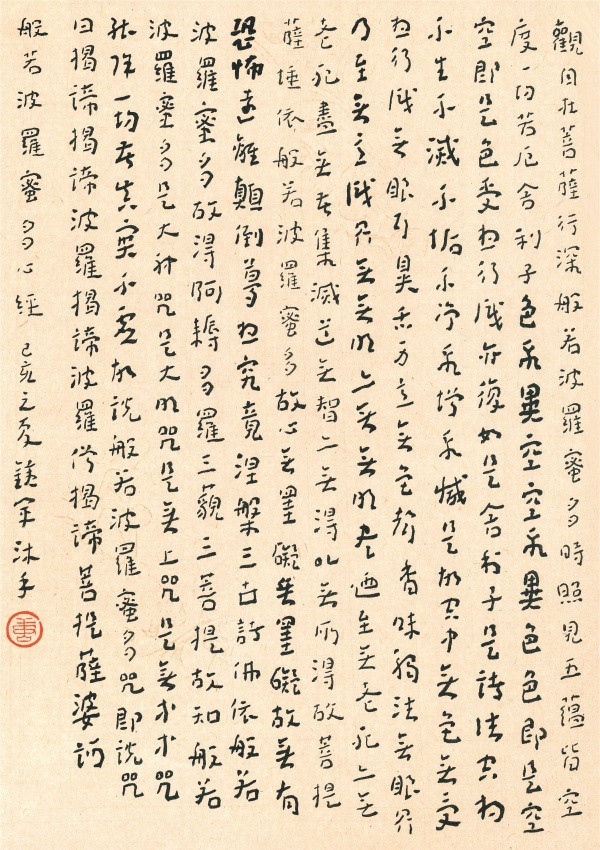 觀自在菩薩行深般若波羅蜜多時照見五蘊皆空
度一切苦厄舍利子色不異空空不異色色即是空
空即是色受想行識亦復如是舍利子是諸法空相
不生不滅不垢不淨不增不減是故空中無色無受
想行識無眼耳鼻舌身意無色聲香味觸法無眼界
乃至無意識界無無明亦無無明盡迺至無老死亦無
老死盡無苦集滅道無智亦無得以無所得故菩提
薩埵依般若波羅蜜多故心無罣礙無罣礙故無有
恐怖遠離顛倒夢想究竟涅槃三世諸佛依般若
波羅蜜多故得阿耨多羅三藐三菩提故知般若
波羅蜜多是大神咒是大明咒是無上咒是無等等咒
能除一切苦真實不虛故說般若波羅蜜多咒即說咒
曰揭諦揭諦波羅揭諦波羅僧揭諦菩提薩婆訶
般若波羅蜜多心經 己亥之夏 鐵軍沐手